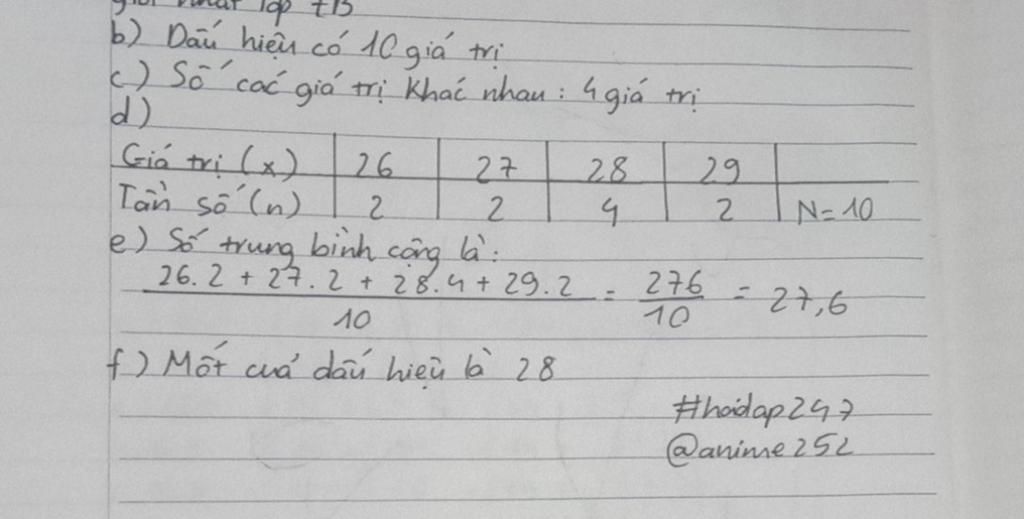 giỏi nhất lớp 7B
b) Dấu hiệu có 10 giá trị
c) Số các giá trị khác nhau: 4 giá trị
d)
Giá trị (x) 26 27 28 29
Tần số (n) 2 2 4 2 N=10
e) Số trung bình cộng là:
26.2 + 27.2 + 28.4 + 29.2 = 276 = 27,6
10 10
f) Mốt cuả dấu hiệu là 28
#hoidap247
@anime252